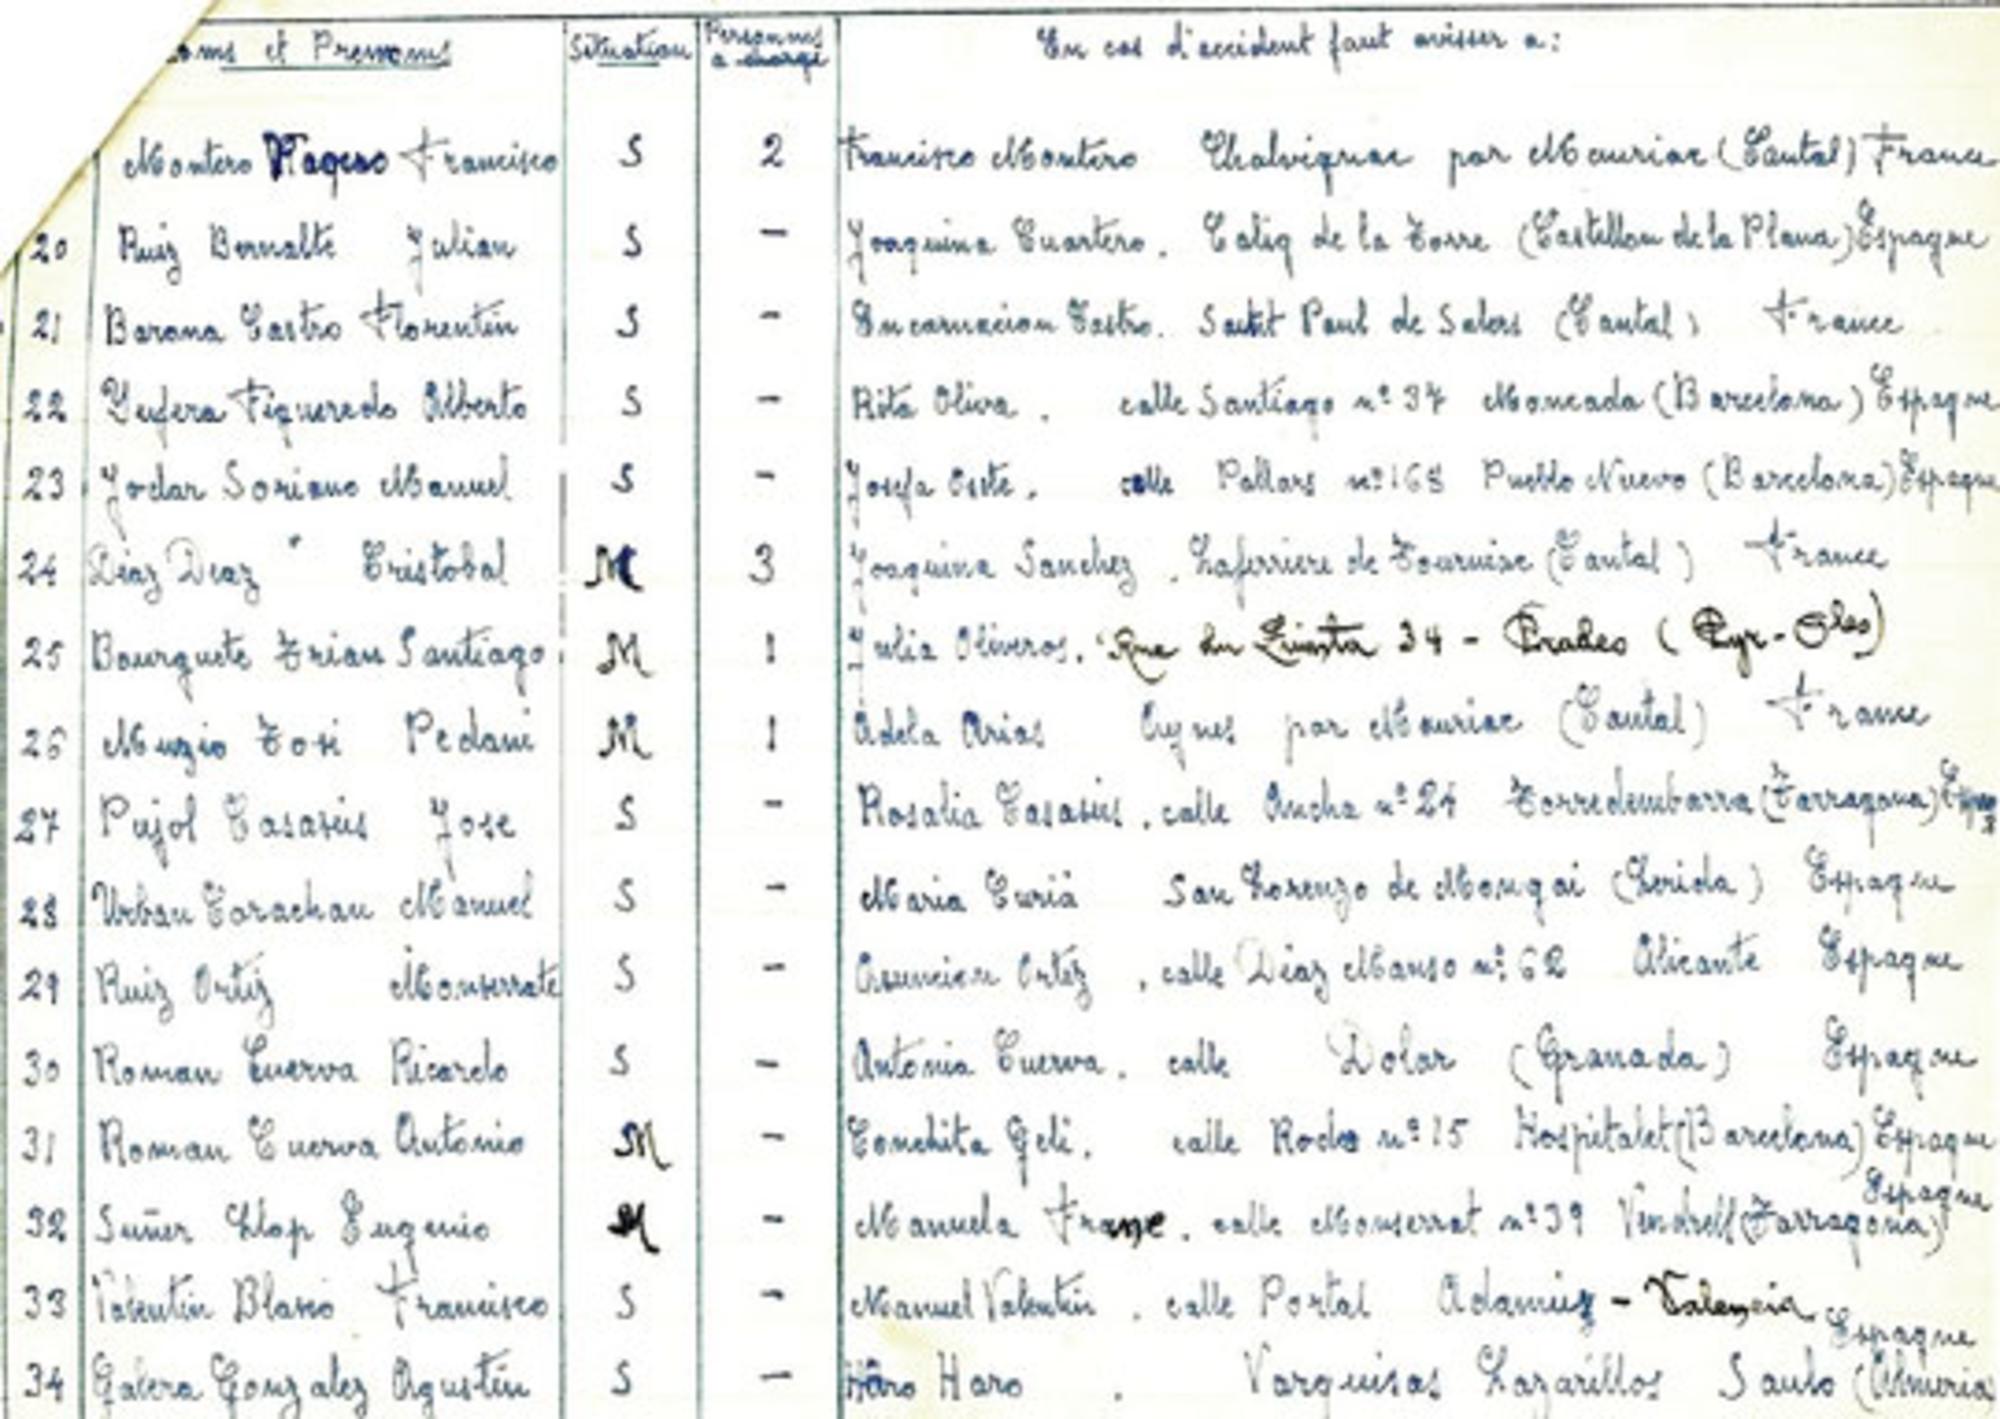 oms et Prenoms Situation Personnes a charge En cas d'accident faut avisser a:
Montero Francisco S 2 Francisco Montero Chalvignac par Mauriac (Cantal) France
20 Ruiz Bernalte Julian S - Joaquina Cuartero. Calig de la Torre (Castellon de la Plana) Espagne
21 Barona Castro Florentin S - Encarnacion Castro. Saint Paul de Salers (Cantal) France
22 Figueredo Alberto S - Rita Oliva. calle Santiago nº 37 Moncada (Barcelona) Espagne
23 Jodar Soriano Manuel S - Josefa Oste. calle Pallars nº 168 Pueblo Nuevo (Barcelona) Espagne
24 Diaz Diaz Cristobal M 3 Joaquina Sanchez. Laferriere de (Cantal) France
25 Bourguete Trian Santiago M 1 Julia Oliveros. Rue du 34 - Prades (Pyr-Oles)
26 Muzio Tosi Pedani M 1 Adela Arias Aynes par Mauriac (Cantal) France
27 Pujol Casasus Jose S - Rosalia Casasus. calle Ancha nº 24 Torredembarra (Tarragona)
28 Urban Carachan Manuel S - Maria Curiá San Lorenzo de Mongai (Lerida) Espagne
29 Ruiz Ortiz Monserrate S - Asuncion Ortiz. calle Diaz Manso nº 62 Alicante Espagne
30 Roman Cuerva Ricardo S - Antonia Cuerva. calle Dolar (Granada) Espagne
31 Roman Cuerva Antonio M - Conchita Geli. calle Roche nº 15 Hospitalet (Barcelona) Espagne
32 Suñer Llop Eugenio M - Manuela. calle Monserrat nº 39 Vendrell (Tarragona) Espagne
33 Valentin Blasco Francisco S - Manuel Valentin. calle Portal Adamuz - Valencia Espagne
34 Galera Gonzalez Agustin S - Haro Haro. Lazarillos Saulo (Almeria